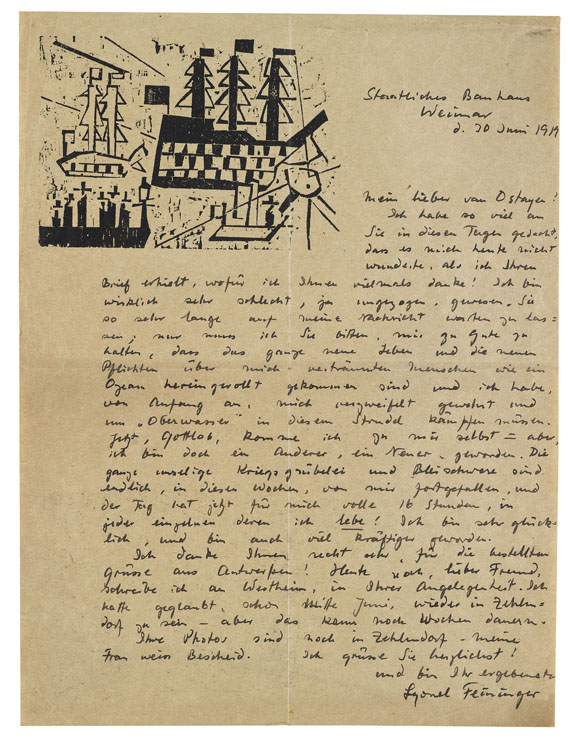 Staatliches Bauhaus
Weimar
d. 30 Juni 1919
Mein lieber van Ostayen!
Ich habe so viel an
Sie in diesen Tagen gedacht,
dass es mich heute nicht
wunderte, als ich Ihren
Brief erhielt, wofür ich Ihnen vielmals danke! Ich bin
wirklich sehr schlecht, ja ungezogen, gewesen, Sie
so sehr lange auf meine Nachricht warten zu las-
sen; nur muss ich Sie bitten, mir zu Gute zu
halten, dass das ganze neue Leben und die neuen
Pflichten über mich verträumten Menschen wie ein
Ozean hereingerollt gekommen sind und ich habe,
von Anfang an, mich verzweifelt gewehrt und
um „Oberwasser" in diesem Strudel kämpfen müssen.
Jetzt, Gottlob, komme ich zu mir selbst – aber,
ich bin doch ein Anderer, ein Neuer – geworden. Die
ganze unselige Kriegsgrübelei und Bleischwere sind
endlich, in diesen Wochen, von mir fortgefallen, und
der Tag hat jetzt für mich volle 16 Stunden, in
jeder einzelnen deren ich lebe! Ich bin sehr glück-
lich, und bin auch viel kräftiger geworden.
Ich danke Ihnen recht sehr, für die bestellten
Grüsse aus Antwerpen! Heute noch, lieber Freund,
schreibe ich an Westheim, in Ihrer Angelegenheit. Ich
hatte geglaubt, schon Mitte Juni, wieder in Zehlen-
dorf zu sein – aber das kann noch Wochen dauern.
Ihre Photos sind noch in Zehlendorf – meine
Frau weiss Bescheid. Ich grüsse Sie herzlichst!
und bin Ihr ergebenster
Lyonel Feininger